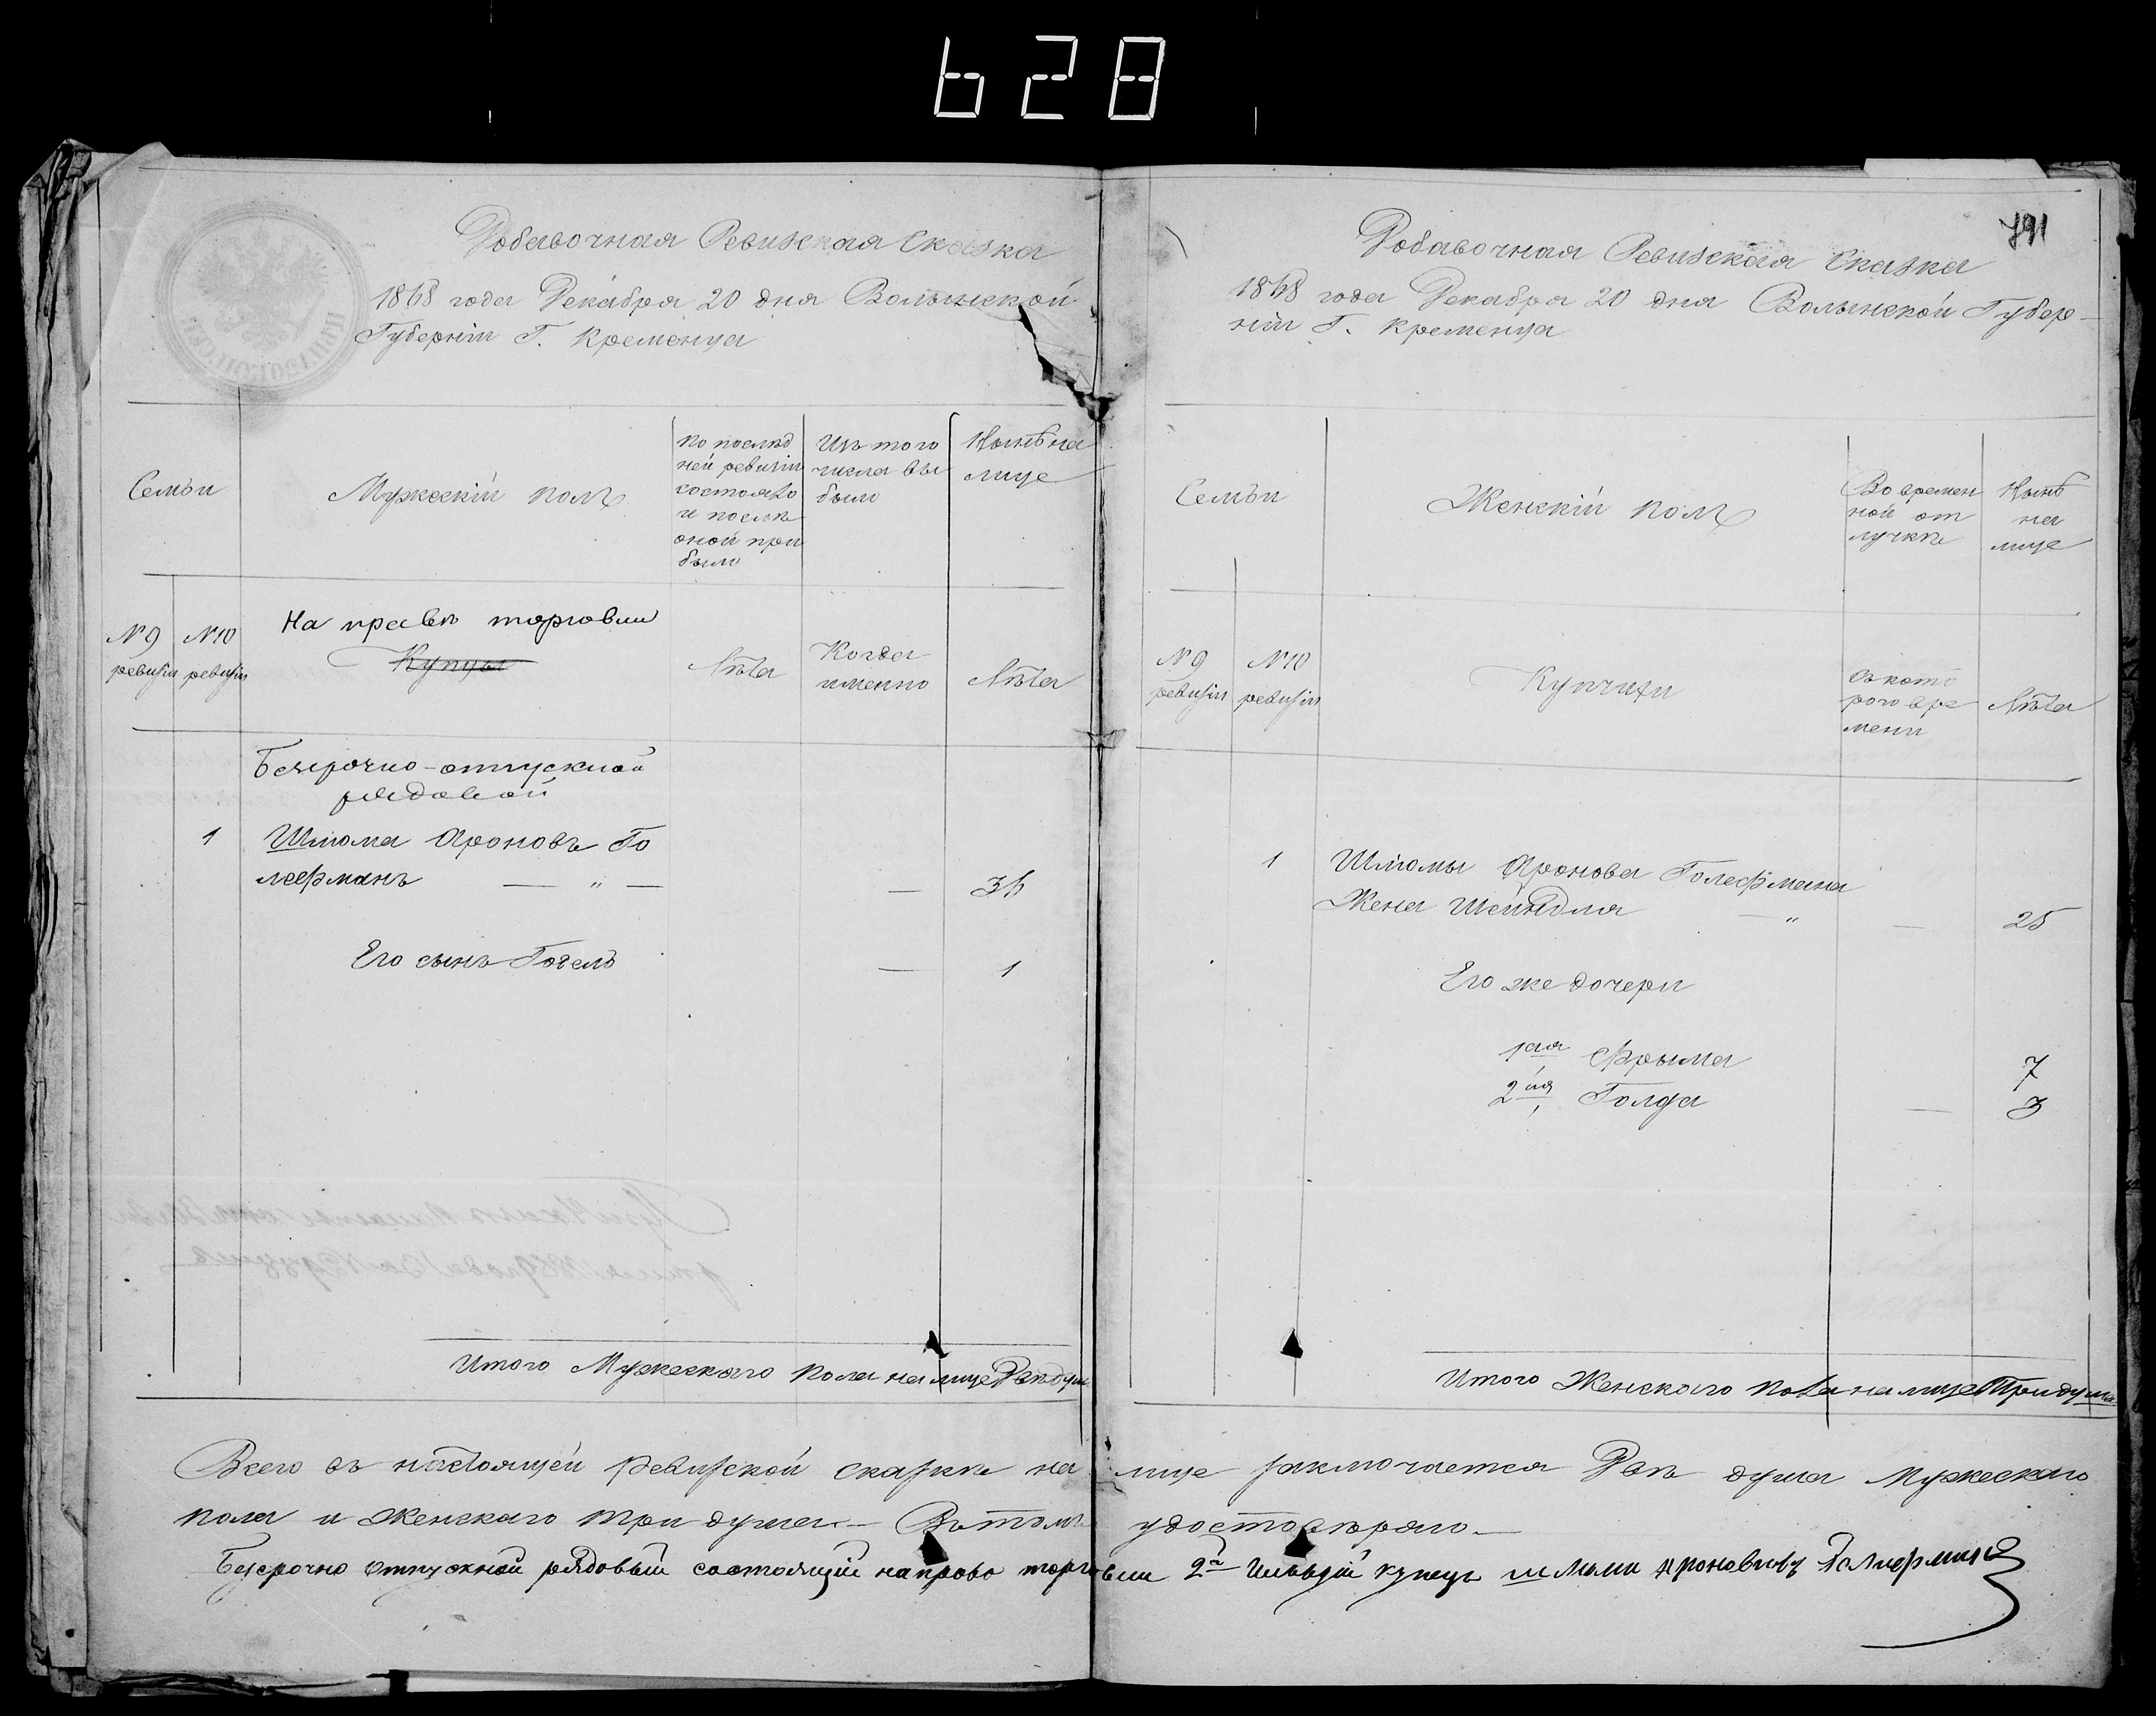 628
Добавочная Ревизская Сказка
1868 года Декабря 20 дня Волынской
Губерніи Г. Кременца
Семьи
Мужескій полъ
По послѣд
ней ревизіи
состояло
и послѣ
оной при
было
Изъ того
числа вы
было
Нынѣ на
лице
№ 9
ревизіи
№ 10
ревизіи
На правѣ торговли
Купцы
Лѣта
Когда
именно
Лѣта
Безсрочно-отпускной
рядовой
1 Шлома Ароновъ Го
лефманъ — „ — — 36
Его сынъ Гогель — 1
Итого Мужескаго пола на лице Двѣ души
791
Добавочная Ревизская Сказка
1868 года Декабря 20 дня Волынской Губер-
ніи Г. Кременца
Семьи
Женскій полъ
Во времен
ной от
лучкѣ
Нынѣ
на
лице
№ 9
ревизіи
№ 10
ревизіи
Купчихи
Съ кото
рого вре
мени
Лѣта
1 Шломы Аронова Голефмана
Жена Шейндля — „ — 25
Его же дочери
1ая Фрыма 7
2ая Голда — 3
Итого Женскаго пола на лице Три душа
Всего въ настоящей ревизской сказкѣ на лице заключается Двѣ душа Мужескаго
пола и Женскаго три душа — Въ томъ удостовѣряю —
Безсрочно отпускной рядовый состоящій на право торговли 2й Гильдіи купецъ Шлома Ароновичъ